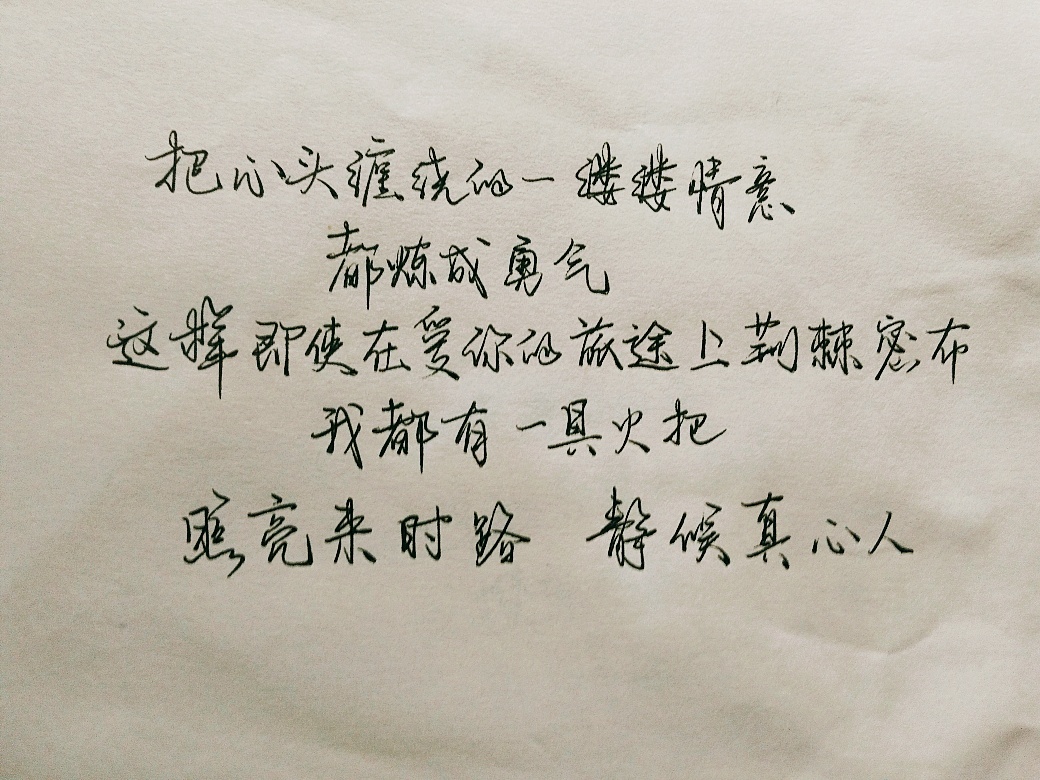 把心头缠绕的一缕缕情意
都炼成勇气
这样即使在爱你的旅途上荆棘密布
我都有一具火把
照亮来时路 静候真心人